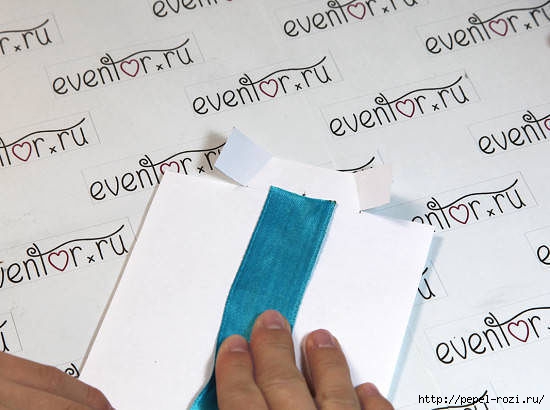 eventor.ru
eventor.ru
eventor.ru
eventor.ru
eventor.ru
eventor.ru
eventor.ru
eventor.ru
eventor.ru
eventor.ru
eventor.ru
http://pepel-rozi.ru/